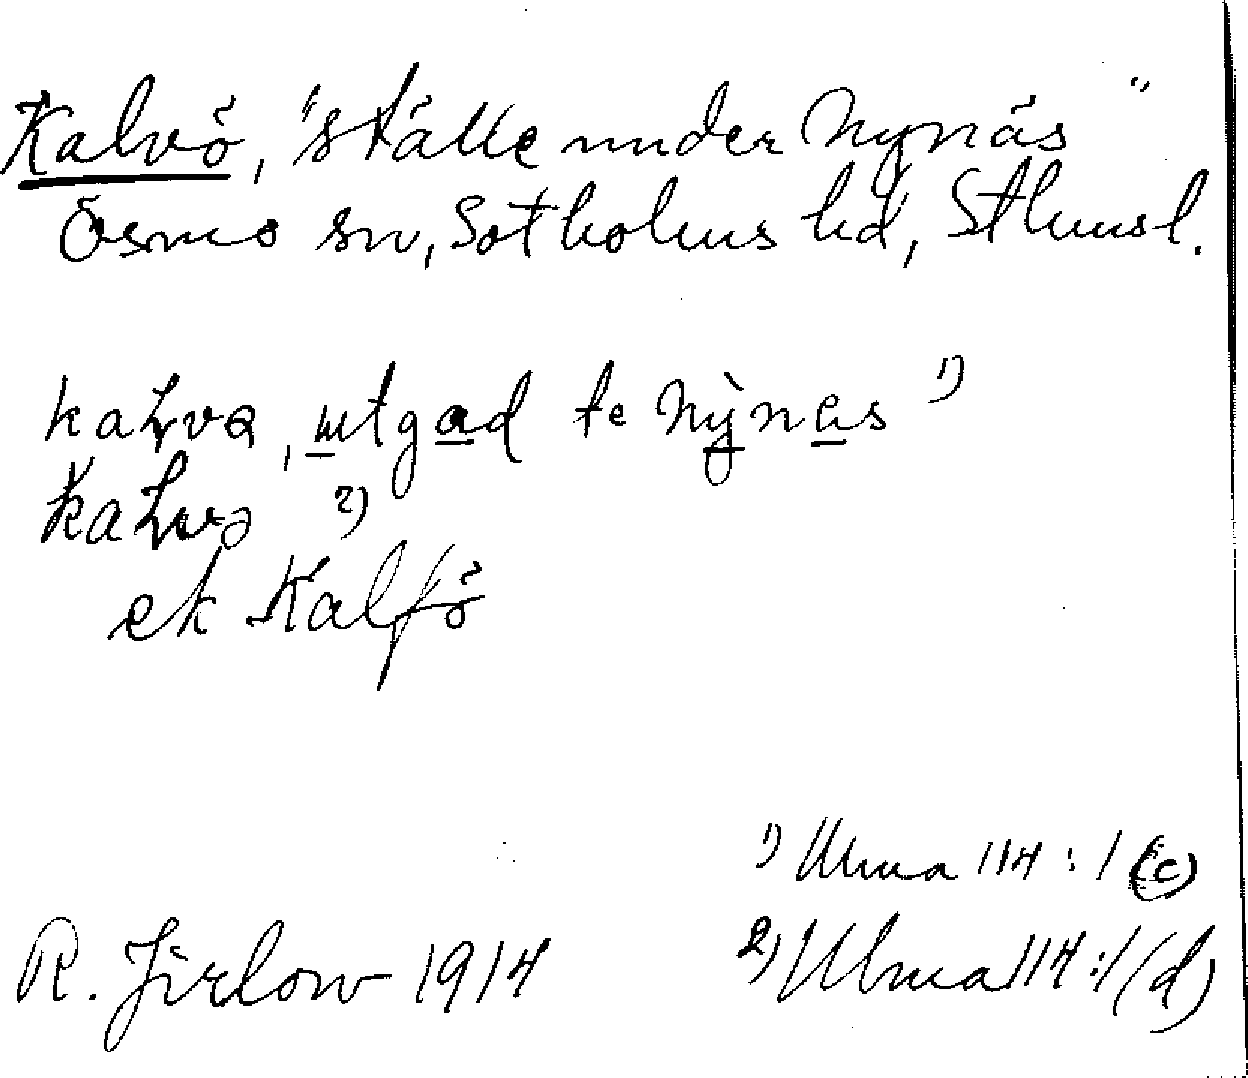 Kalvö, "ställe under Nynäs"
Ösmo sn, Sotholms hd, Sthmsl.
kaLvə, utgad te Nỳnas 1)
kaLvə 2)
ek Kalfö
1) Ulma 114:1 (c)
R. Jirlow 1914 2) Ulma 114:1 (d)